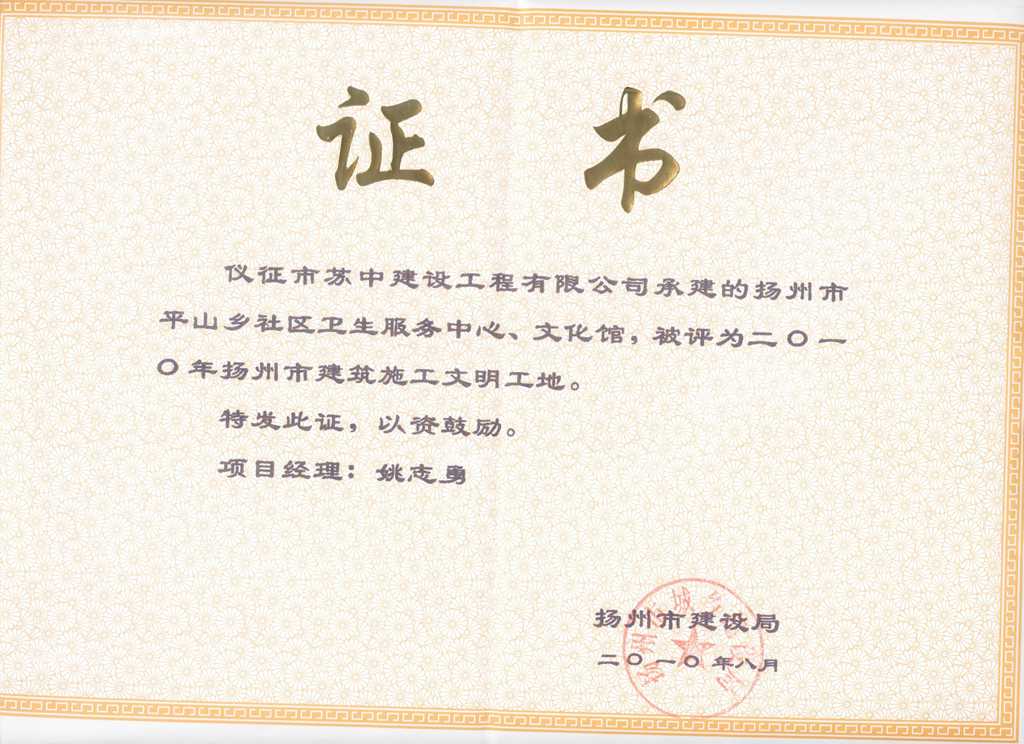 证 书
仪征市苏中建设工程有限公司承建的扬州市
平山乡社区卫生服务中心、文化馆，被评为二〇一
〇年扬州市建筑施工文明工地。
特发此证，以资鼓励。
项目经理：姚志勇
扬州市建设局
二〇一〇年八月